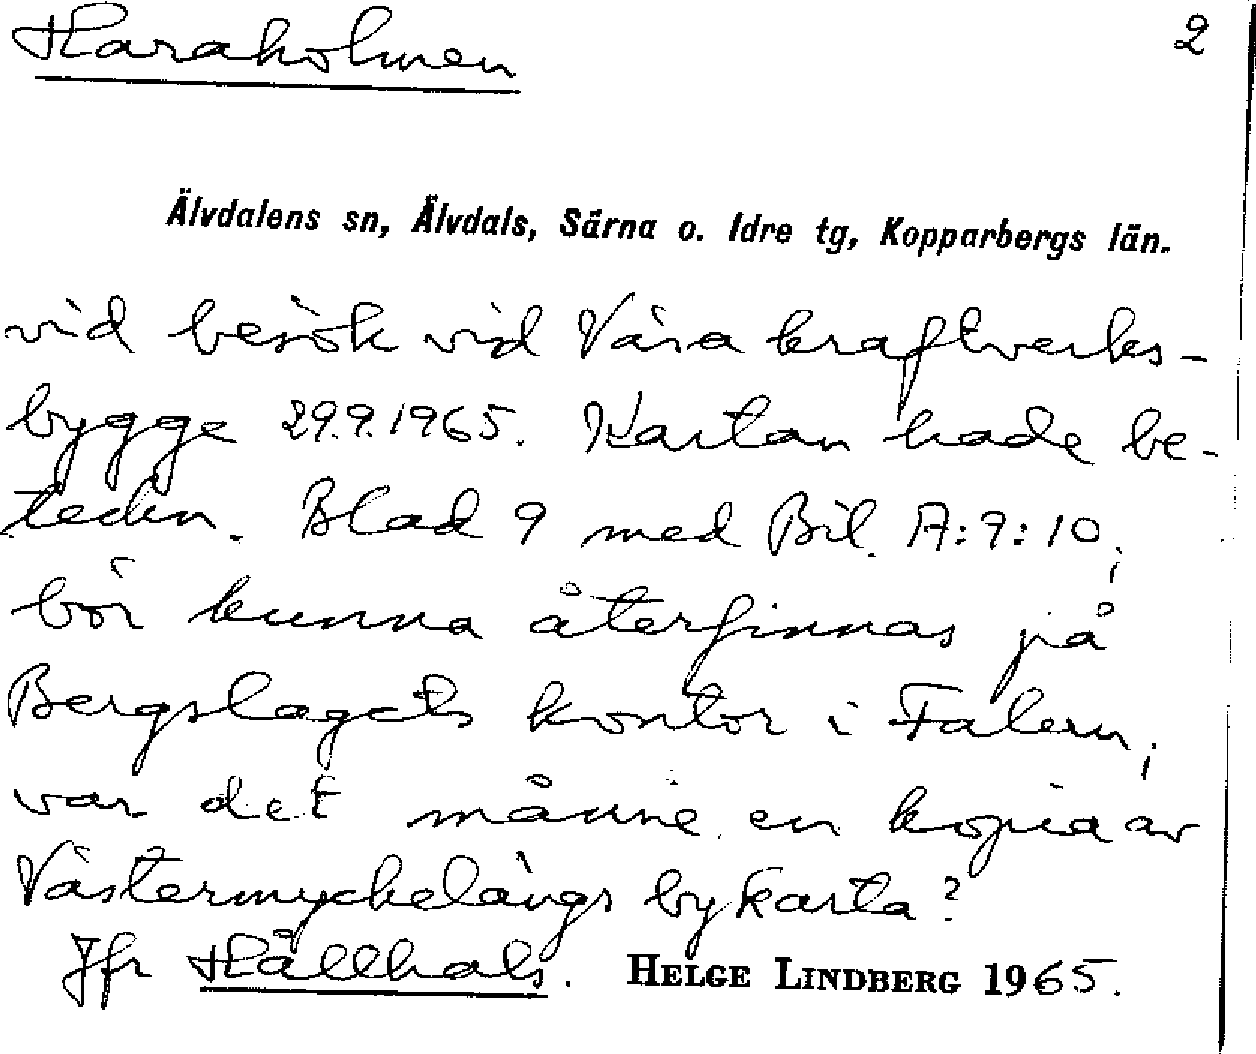 Haraholmen 2
Älvdalens sn, Älvdals, Särna o. Idre tg, Kopparbergs län.
vid besök vid Våsa kraftverks-
bygge 29.9.1965. Kartan hade be-
teckn. Blad 9 med Bil. A:9:10,
bör kunna återfinnas på
Bergslagets kontor i Falun,
var det månne en kopia av
Västermyckelängs bykarta?
Jfr Hållhals. HELGE LINDBERG 1965.